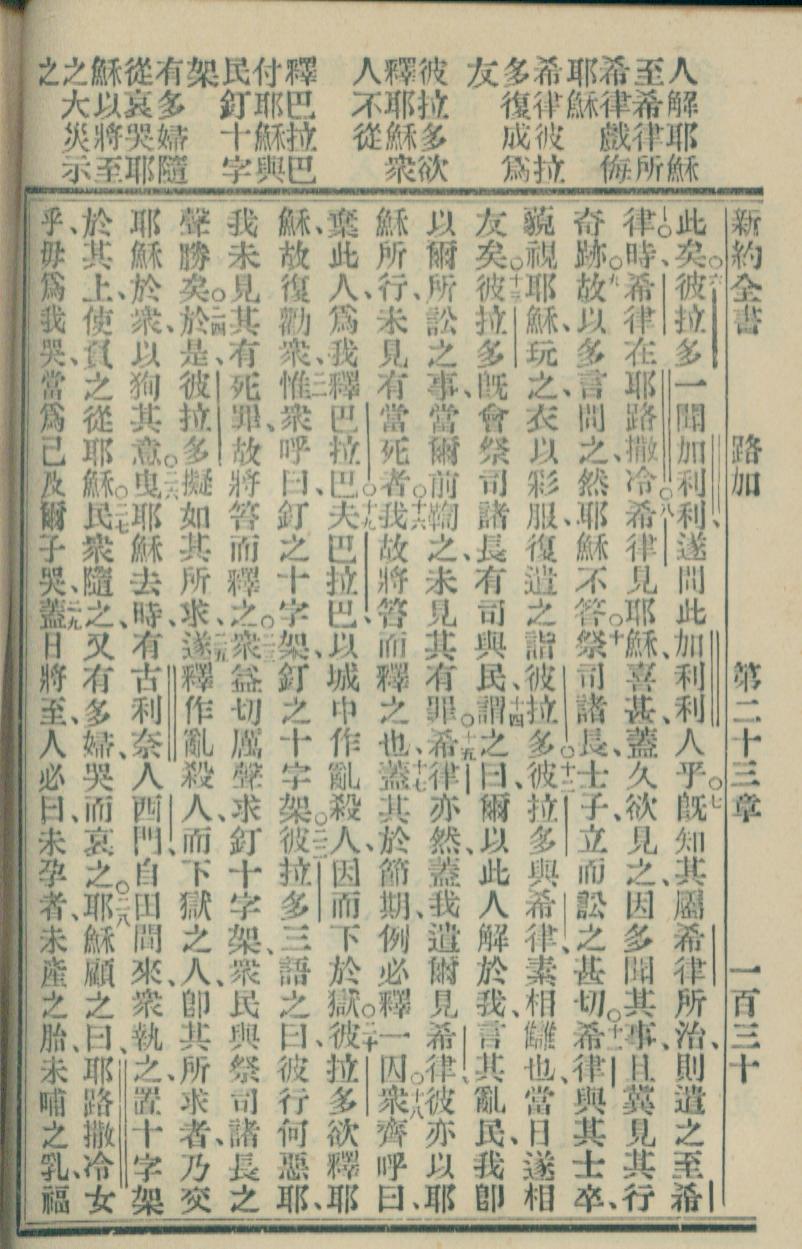 人解耶穌
至希律所
希律戲侮
耶穌
希律彼拉
多復成爲
友
彼拉多欲
釋耶穌衆
人不從
釋巴拉巴
付耶穌與
民釘十字
架
有多婦隨
從哀哭耶
穌以將至
之大災示
之
新約全書 路加 第二十三章 一百三十
此矣、○六彼拉多一聞加利利、遂問此加利利人乎、○七旣知其屬希律所治、則遣之至希
律、○時希律在耶路撒冷、○八希律見耶穌、喜甚、蓋久欲見之、因多聞其事、且冀見其行
奇跡、○九故以多言問之、然耶穌不答、○十祭司諸長、士子、立而訟之甚切、○十一希律與其士卒、
藐視耶穌、玩之、衣以彩服、復遣之詣彼拉多、○十二彼拉多與希律、素相讎也、當日遂相
友矣、○十三彼拉多旣會祭司諸長有司與民、十四謂之曰、爾以此人解於我、言其亂民、我卽
以爾所訟之事、當爾前鞫之、未見其有罪、○十五希律亦然、蓋我遣爾見希律、彼亦以耶
穌所行、未見有當死者、○十六我故將笞而釋之也、十七蓋其於節期、例必釋一囚、○十八衆齊呼曰、
棄此人、爲我釋巴拉巴、○十九夫巴拉巴、以城中作亂殺人、因而下於獄、○二十彼拉多欲釋耶
穌、故復勸衆、二一惟衆呼曰、釘之十字架、釘之十字架、○二二彼拉多三語之曰、彼行何惡耶、
我未見其有死罪、故將笞而釋之、○二三衆益切厲聲求釘十字架、衆民與祭司諸長之
聲勝矣、○二四於是彼拉多擬如其所求、二五遂釋作亂殺人、而下獄之人、卽其所求者、乃交
耶穌於衆、以狥其意、○二六曳耶穌去時、有古利奈人西門、自田間來、衆執之、置十字架
於其上、使負之從耶穌、○二七民衆隨之、又有多婦、哭而哀之、○二八耶穌顧之曰、耶路撒冷女
乎、毋爲我哭、當爲己及爾子哭、二九蓋日將至、人必曰、未孕者、未產之胎、未哺之乳、福